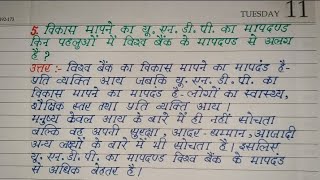 TUESDAY 11
5. विकास मापने का यू.एन.डी.पी. का मापदण्ड
किन पहलुओं में विश्व बैंक के मापदण्ड से अलग
है ?
उत्तर :- विश्व बैंक का विकास मापने का मापदंड है-
प्रति व्यक्ति आय जबकि यू.एन.डी.पी. का
विकास मापने का मापदंड है- लोगों का स्वास्थ्य,
शैक्षिक स्तर तथा प्रति व्यक्ति आय ।
मनुष्य केवल आय के बारे में ही नहीं सोचता
बल्कि वह अपनी सुरक्षा, आदर-सम्मान, आज़ादी
अन्य लक्ष्यों के बारे में भी सोचता है। इसलिए
यू.एन.डी.पी. का मापदण्ड विश्व बैंक के मापदंड
से अधिक बेहतर है।